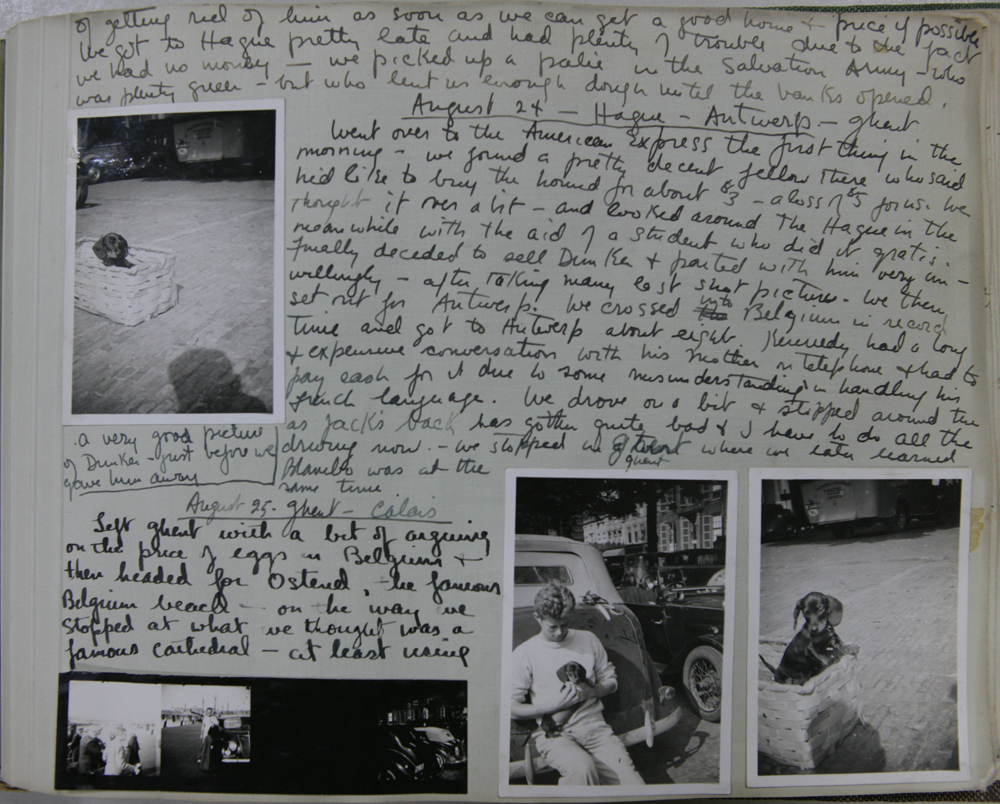 of getting rid of him as soon as we can get a good home + price if possible
We got to Hague pretty late and had plenty of trouble due to the fact
we had no money — we picked up a in the Salvation Army — who
was plenty queer — but who lent us enough dough until the banks opened.
August 24 — Hague — Antwerp. — ghent
Went over to the American Express the first thing in the
morning — we found a pretty decent fellow there who said
he'd like to buy the hound for about $3 — a loss of $5 for us. We
thought it over a bit — and looked around The Hague in the
meanwhile with the aid of a student who did it gratis.
Finally decided to sell Dunker + parted with him very un-
willingly — after taking many last shot pictures. We then
set out for Antwerp. We crossed into Belgium in record
time and got to Antwerp about eight. Kennedy had a long
+ expensive conversation with his mother on telephone + had to
pay cash for it due to some misunderstanding in handling his
french language. We drove on a bit + stopped around ten
as Jack's back has gotten quite bad + I have to do all the
driving now. — we stopped in ghent where we later learned
Blambo was at the
same time
. a very good picture
of Dunker — just before we
gave him away
August 25 - ghent — Calais
Left ghent with a bit of arguing
on the price of eggs in Belgium +
then headed for Ostend, the famous
Belgium beach — on the way we
stopped at what we thought was a
famous cathedral — at least using